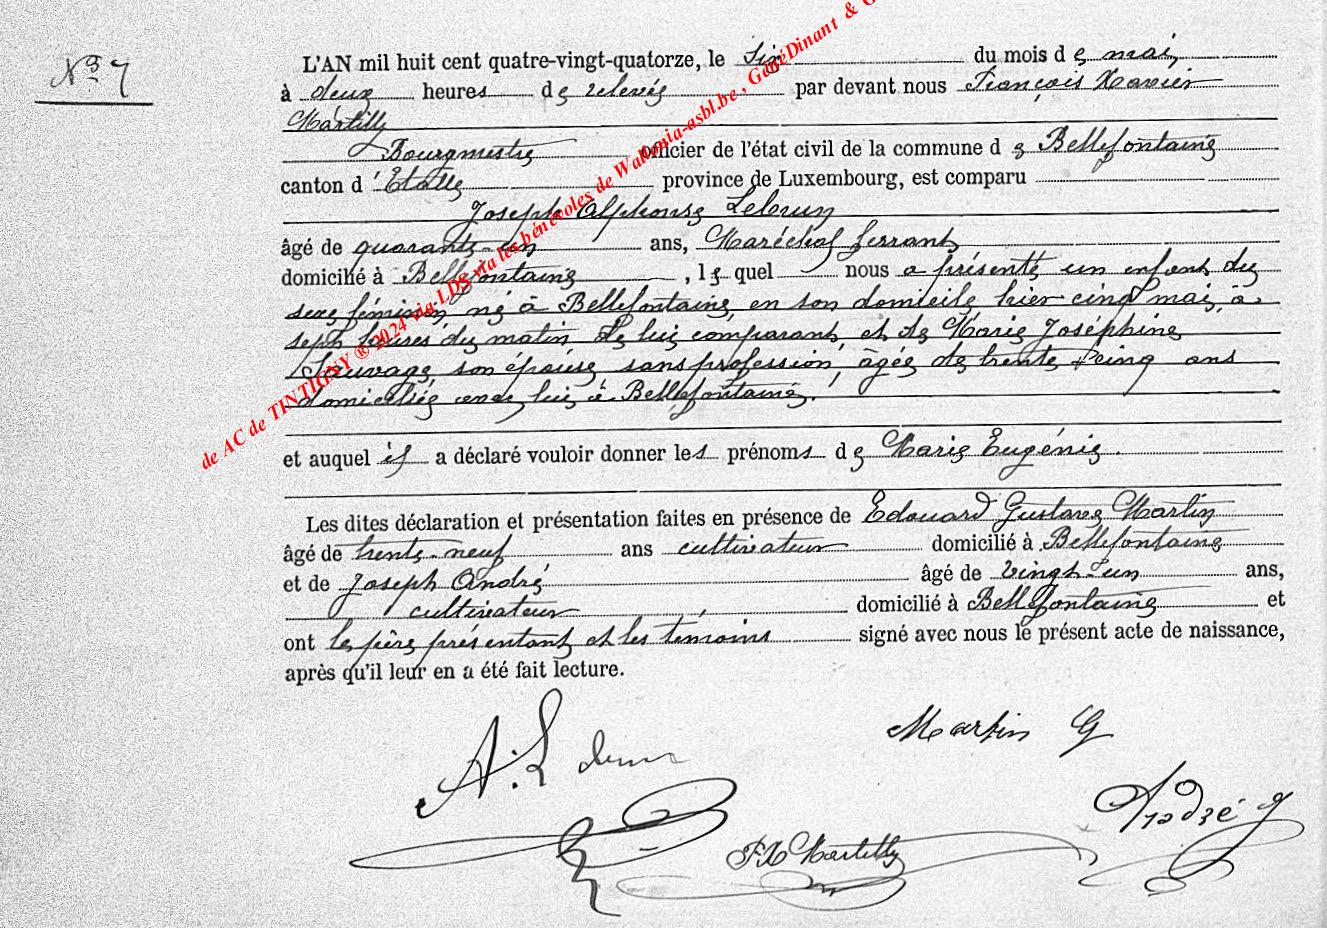 N° 7
L'AN mil huit cent quatre-vingt-quatorze, le six du mois de mai,
à deux heures de relevée par devant nous François Xavier
Martilly
Bourgmestre officier de l'état civil de la commune de Bellefontaine
canton d'Etalle province de Luxembourg, est comparu
Joseph Alphonse Lebrun
âgé de quarante-un ans, Maréchal ferrant
domicilié à Bellefontaine, lequel nous a présenté un enfant du
sexe féminin, né à Bellefontaine, en son domicile, hier cinq mai, à
sept heures du matin de lui comparant, et de Marie Joséphine
Sauvage, son épouse, sans profession, âgée de trente cinq ans
domiciliée avec lui à Bellefontaine.
et auquel il a déclaré vouloir donner les prénoms de Marie Eugénie.
Les dites déclaration et présentation faites en présence de Edouard Gustave Martin
âgé de trente-neuf ans cultivateur domicilié à Bellefontaine
et de Joseph André âgé de vingt-un ans,
cultivateur domicilié à Bellefontaine et
ont le père présentant et les témoins signé avec nous le présent acte de naissance,
après qu'il leur en a été fait lecture.
Martin G
A. Lebrun
André J
F X Martilly
de AC de TINTIGNY ® 2024 via LDS via les bénévoles de Wallonia-asbl.be , GénéDinant & G